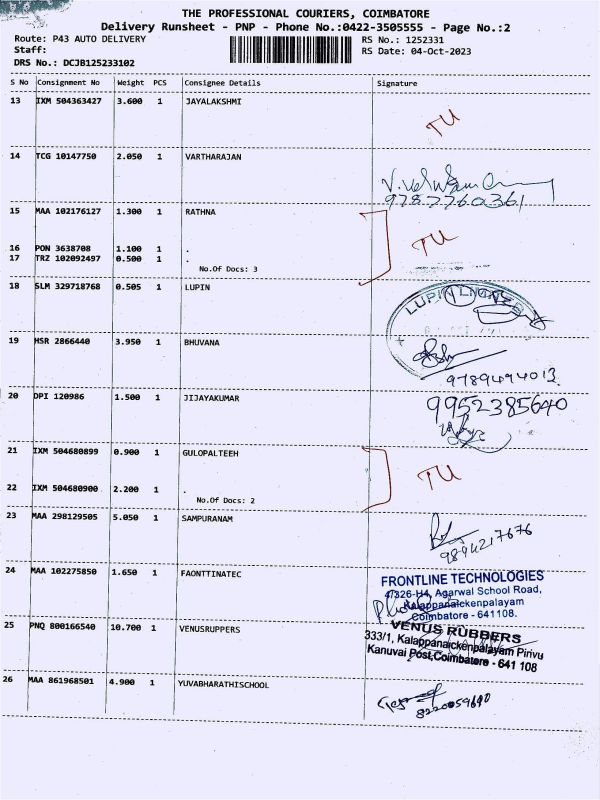 THE PROFESSIONAL COURIERS, COIMBATORE
Delivery Runsheet - PNP - Phone No.:0422-3505555 - Page No.:2
Route: P43 AUTO DELIVERY
RS No.: 1252331
Staff:
RS Date: 04-Oct-2023
DRS No.: DCJB125233102
S No Consignment No Weight PCS Consignee Details Signature
13 IXM 504363427 3.600 1 JAYALAKSHMI
TU
14 TCG 10147750 2.050 1 VARTHARAJAN
9787760361
15 MAA 102176127 1.300 1 RATHNA
TU
16 PON 3638708 1.100 1 .
17 TRZ 102092497 0.500 1 .
No.Of Docs: 3
18 SLM 329718768 0.505 1 LUPIN
LUPIN
19 HSR 2866440 3.950 1 BHUVANA
9789494013.
20 DPI 120986 1.500 1 JIJAYAKUMAR
9952385640
21 IXM 504680899 0.900 1 GULOPALTEEH
TU
22 IXM 504680900 2.200 1 .
No.Of Docs: 2
23 MAA 298129505 5.050 1 SAMPURANAM
9894217676
24 MAA 102275850 1.650 1 FAONTTINATEC
FRONTLINE TECHNOLOGIES
4/326-H4, Agarwal School Road,
Kalappanaickenpalayam
Coimbatore - 641108.
25 PNQ 800166540 10.700 1 VENUSRUPPERS
VENUS RUBBERS
333/1, Kalappanaickenpalayam Pirivu
Kanuvai Post, Coimbatore - 641 108
26 MAA 861968501 4.900 1 YUVABHARATHISCHOOL